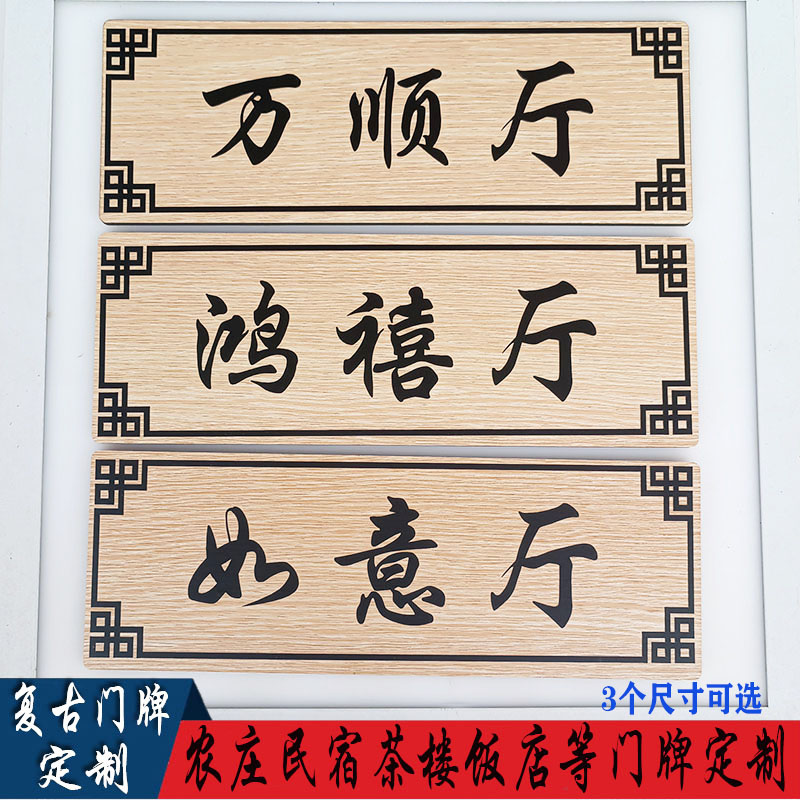 万顺厅
鸿禧厅
如意厅
3个尺寸可选
复古门牌
定制
农庄民宿茶楼饭店等门牌定制